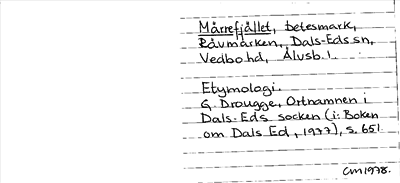 Mårrefjållet, betesmark,
Råvmarken, Dals-Eds sn,
Vedbo hd, Älvsb. l.
Etymologi.
G. Drougge, Ortnamnen i
Dals-Eds socken (i: Boken
om Dals Ed, 1977), s. 651.
CM 1978.